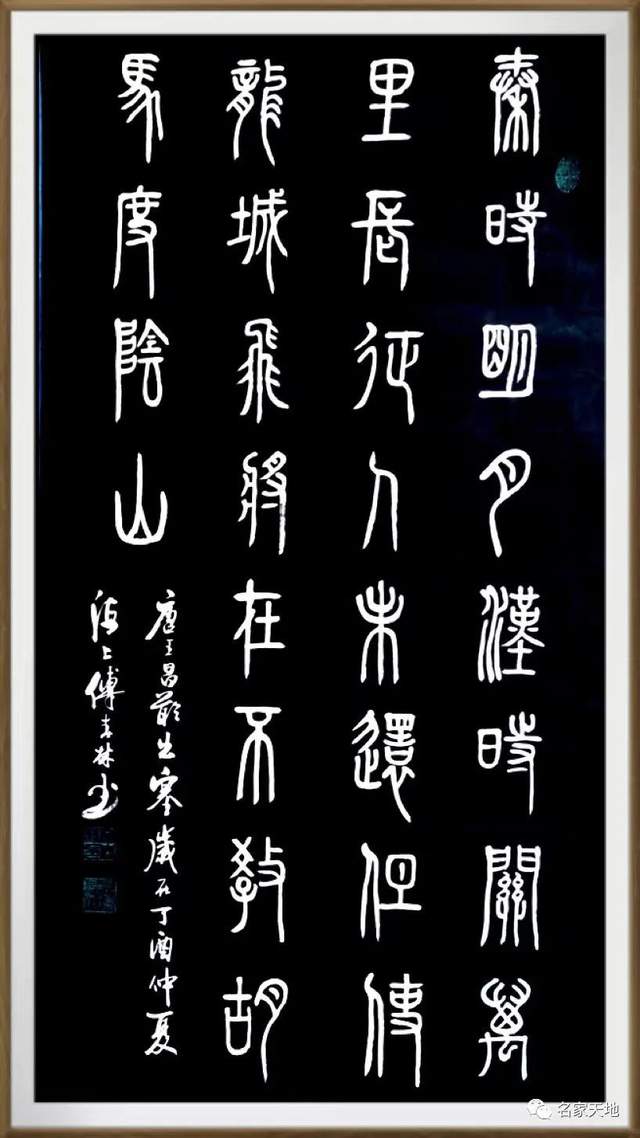 秦時明月漢時關萬
里長征人未還但使
龍城飛將在不教胡
馬度陰山
唐王昌齡出塞歲在丁酉仲夏
海上傅林书
名家天地